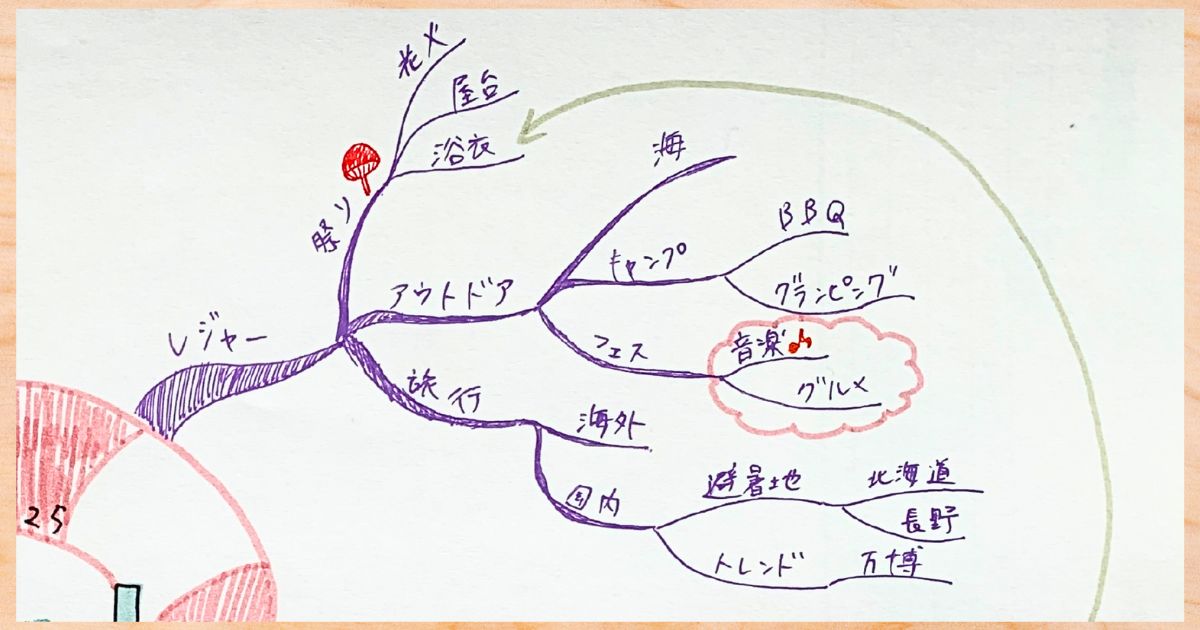 花火
屋台
浴衣
祭り
海
BBQ
キャンプ
グランピング
アウトドア
フェス
音楽
グルメ
レジャー
旅行
海外
国内
避暑地
北海道
長野
トレンド
万博
25